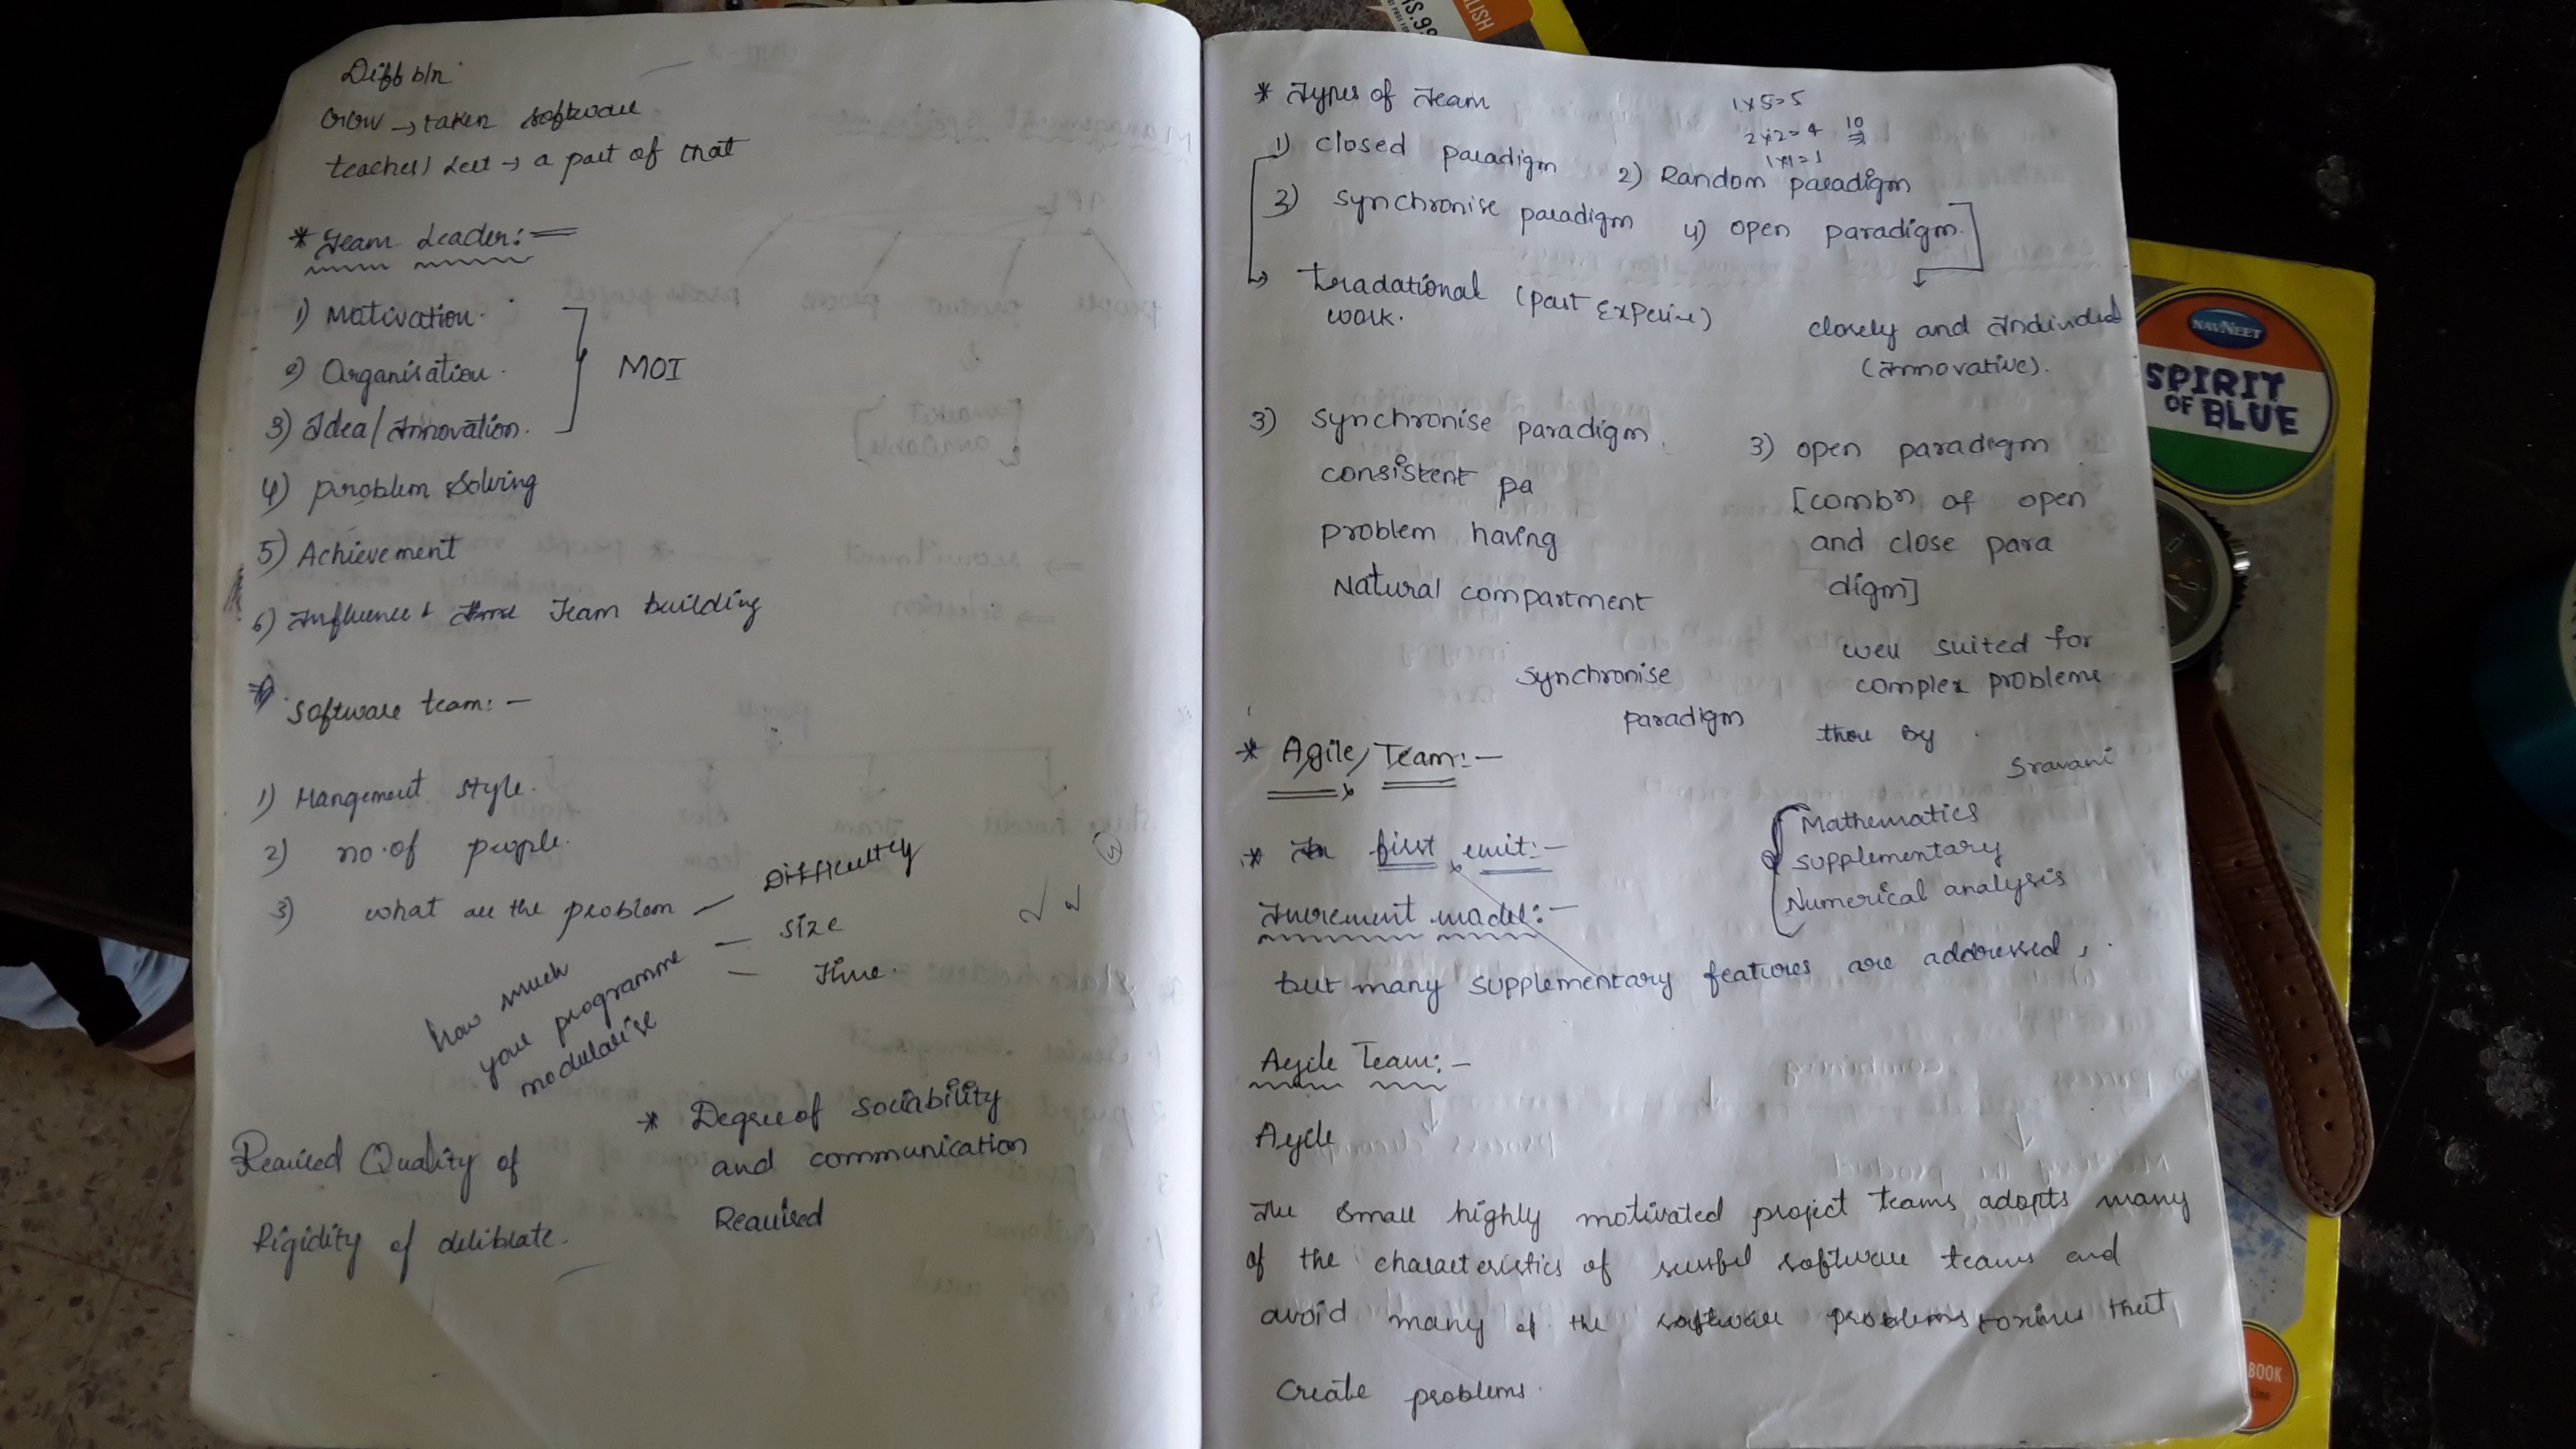 Diff b/n
→ taken software
teachers → a part of that
* Team Leader:=
1) Motivation.
2) Organisation.
3) Idea/Innovation.
MOI
4) problem solving
5) Achievement
6) Influence & Team building
* Software team: -
1) Mangement style.
2) no. of people.
3) what are the problem — Difficultly
— size
— Time.
how much
your programme
modularise
Required Quality of
Rigidity of deliblate.
* Degree of sociability
and communication
Required
* Types of Team
1x5=5
2x2=4 10
1x1=1
1) closed paradigm 2) Random paradigm
3) synchronise paradigm 4) open paradigm.
tradational (past Experine)
work.
closely and Individual
(Innovative).
3) synchronise paradigm.
consistent pa
problem having
Natural compartment
3) open paradigm
[combn of open
and close para
digm]
well suited for
complex problems
synchronise
paradigm
thou By
Sravani
* Agile, Team:-
* In first unit:-
Mathematics
supplementary
Numerical analysis
Increment model:-
but many supplementary features are addressed,
Agile Team: -
Agile
The small highly motivated project teams adopts many
of the characteristics of software teams and
avoid many of the software problems that
Create problems.
RS.99
LISH
NAVNEET
SPIRIT
OF BLUE
BOOK